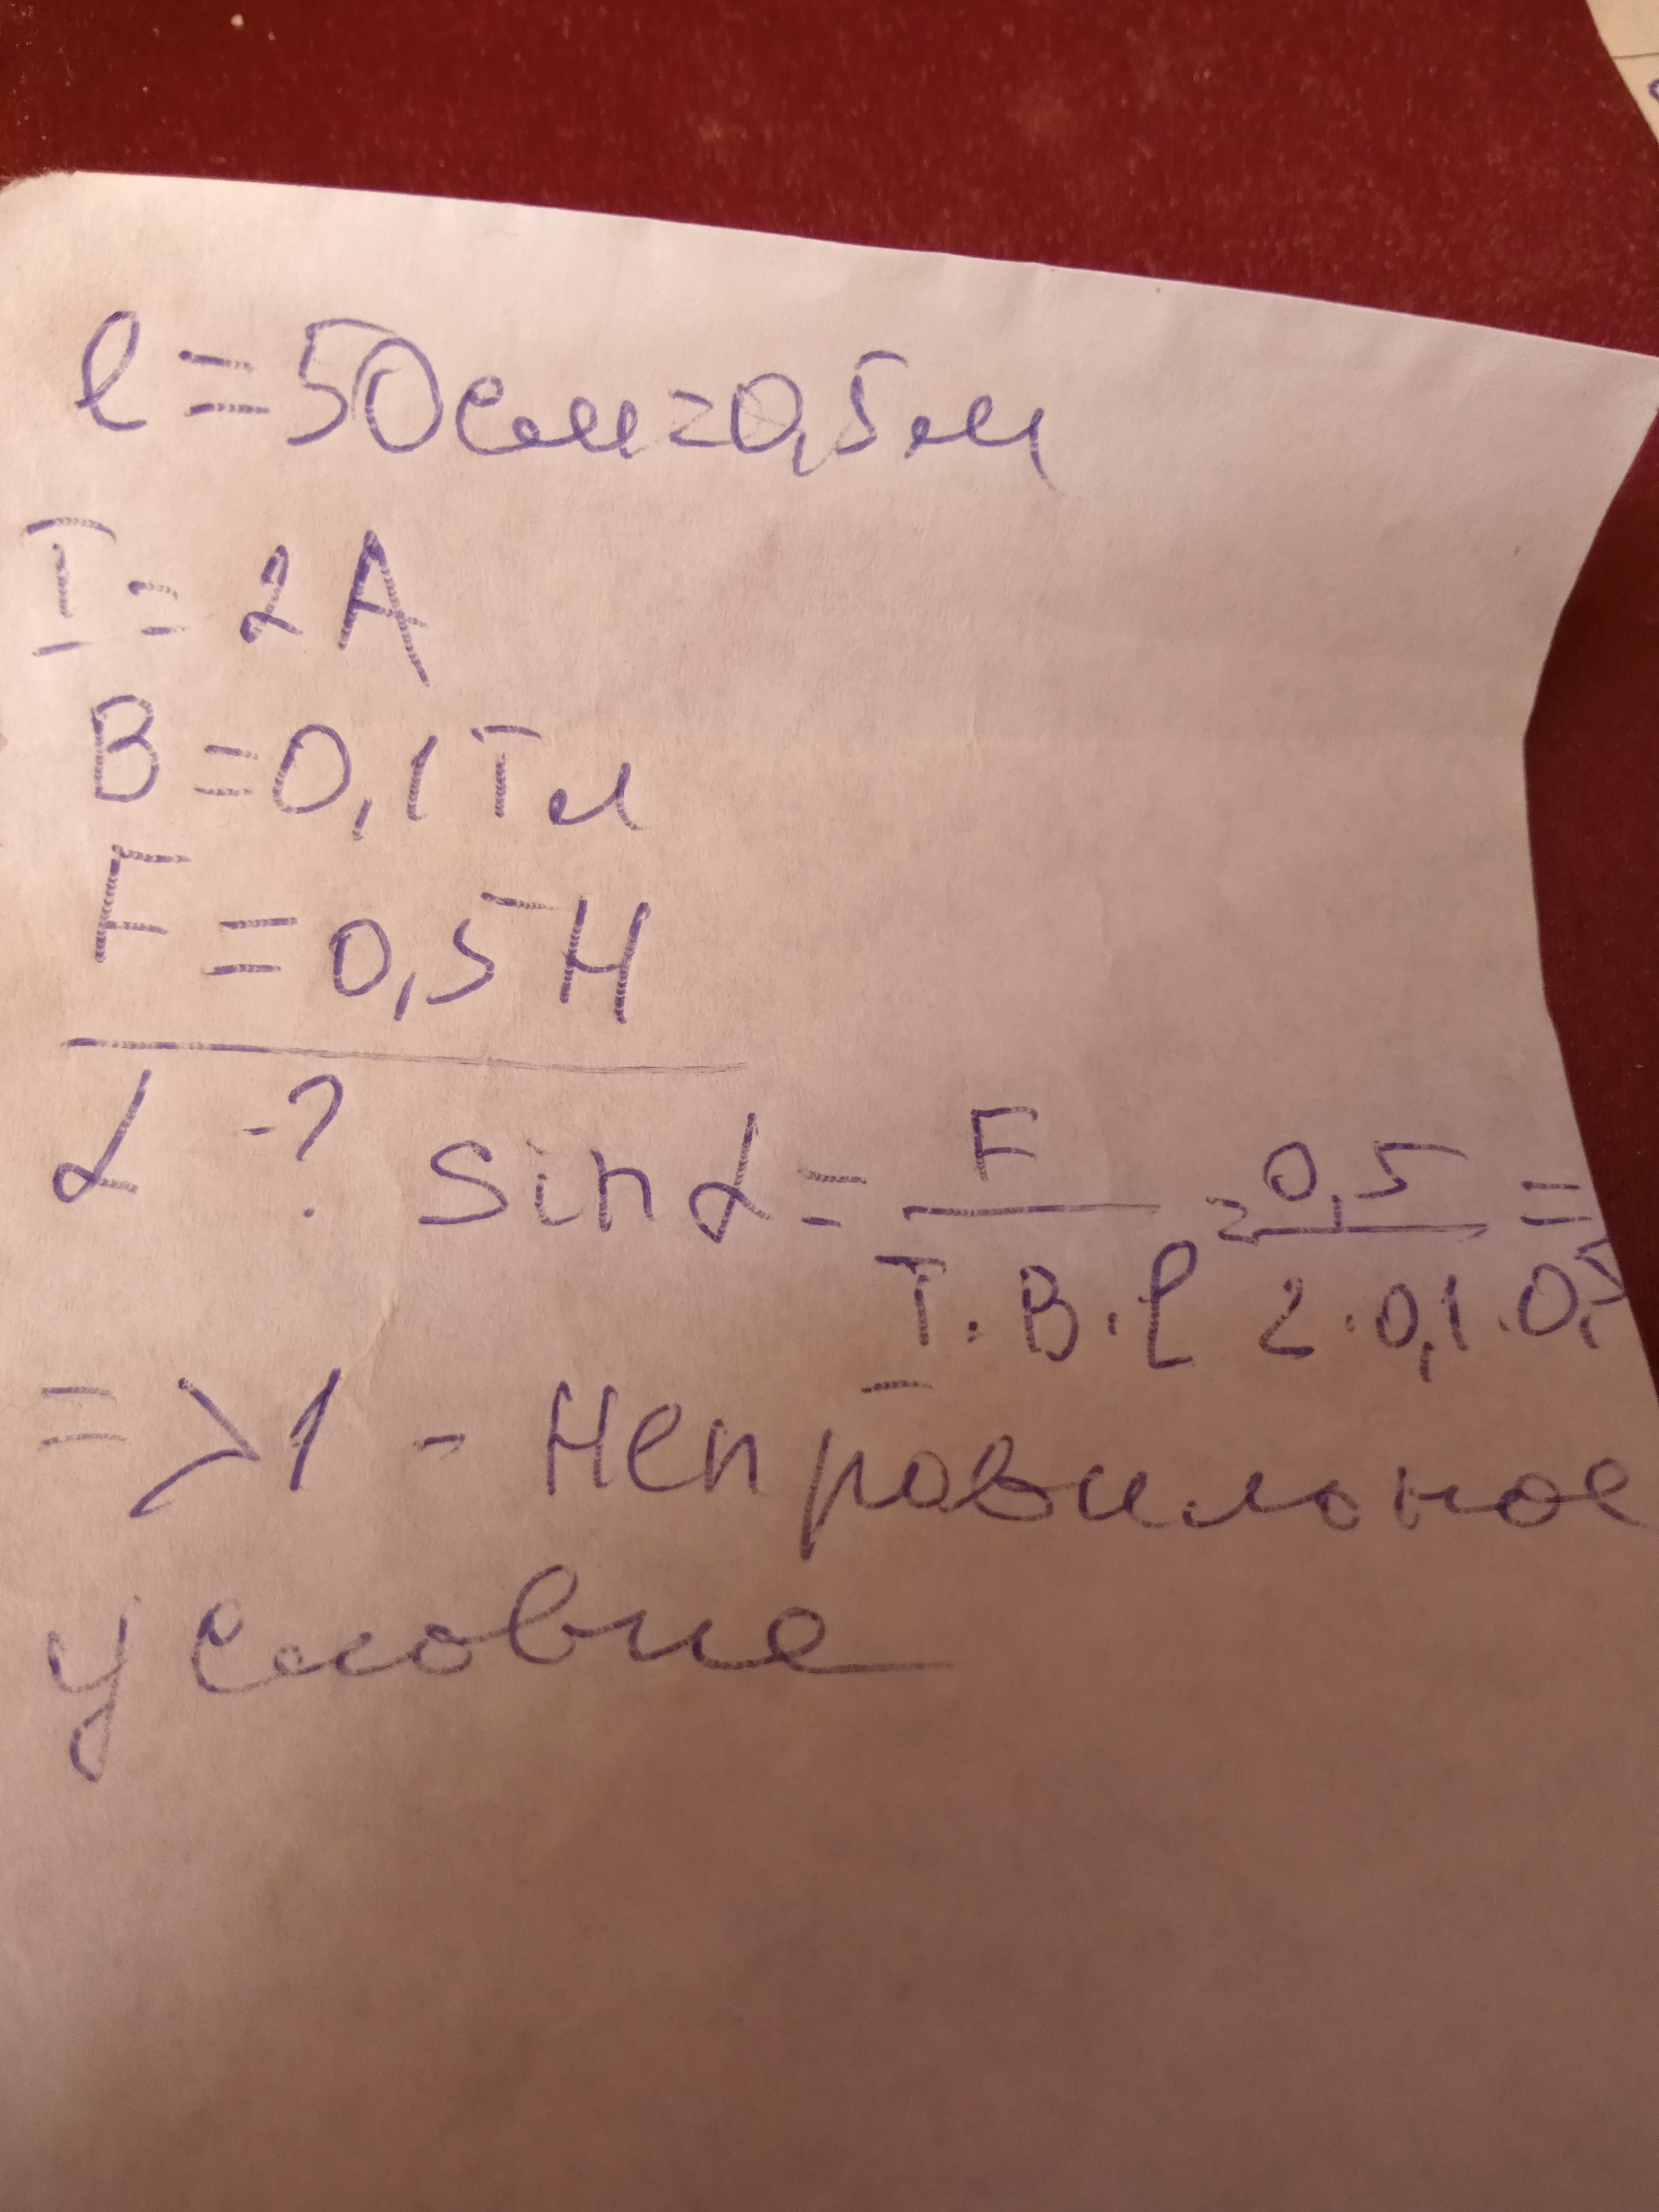 l = 50см = 0,5м
I = 2А
B = 0,1 Тл
F = 0,5 Н
α - ? sin α = F / I · B · l = 0,5 / 2 · 0,1 · 0,5 =
= > 1 - неправильное
условие